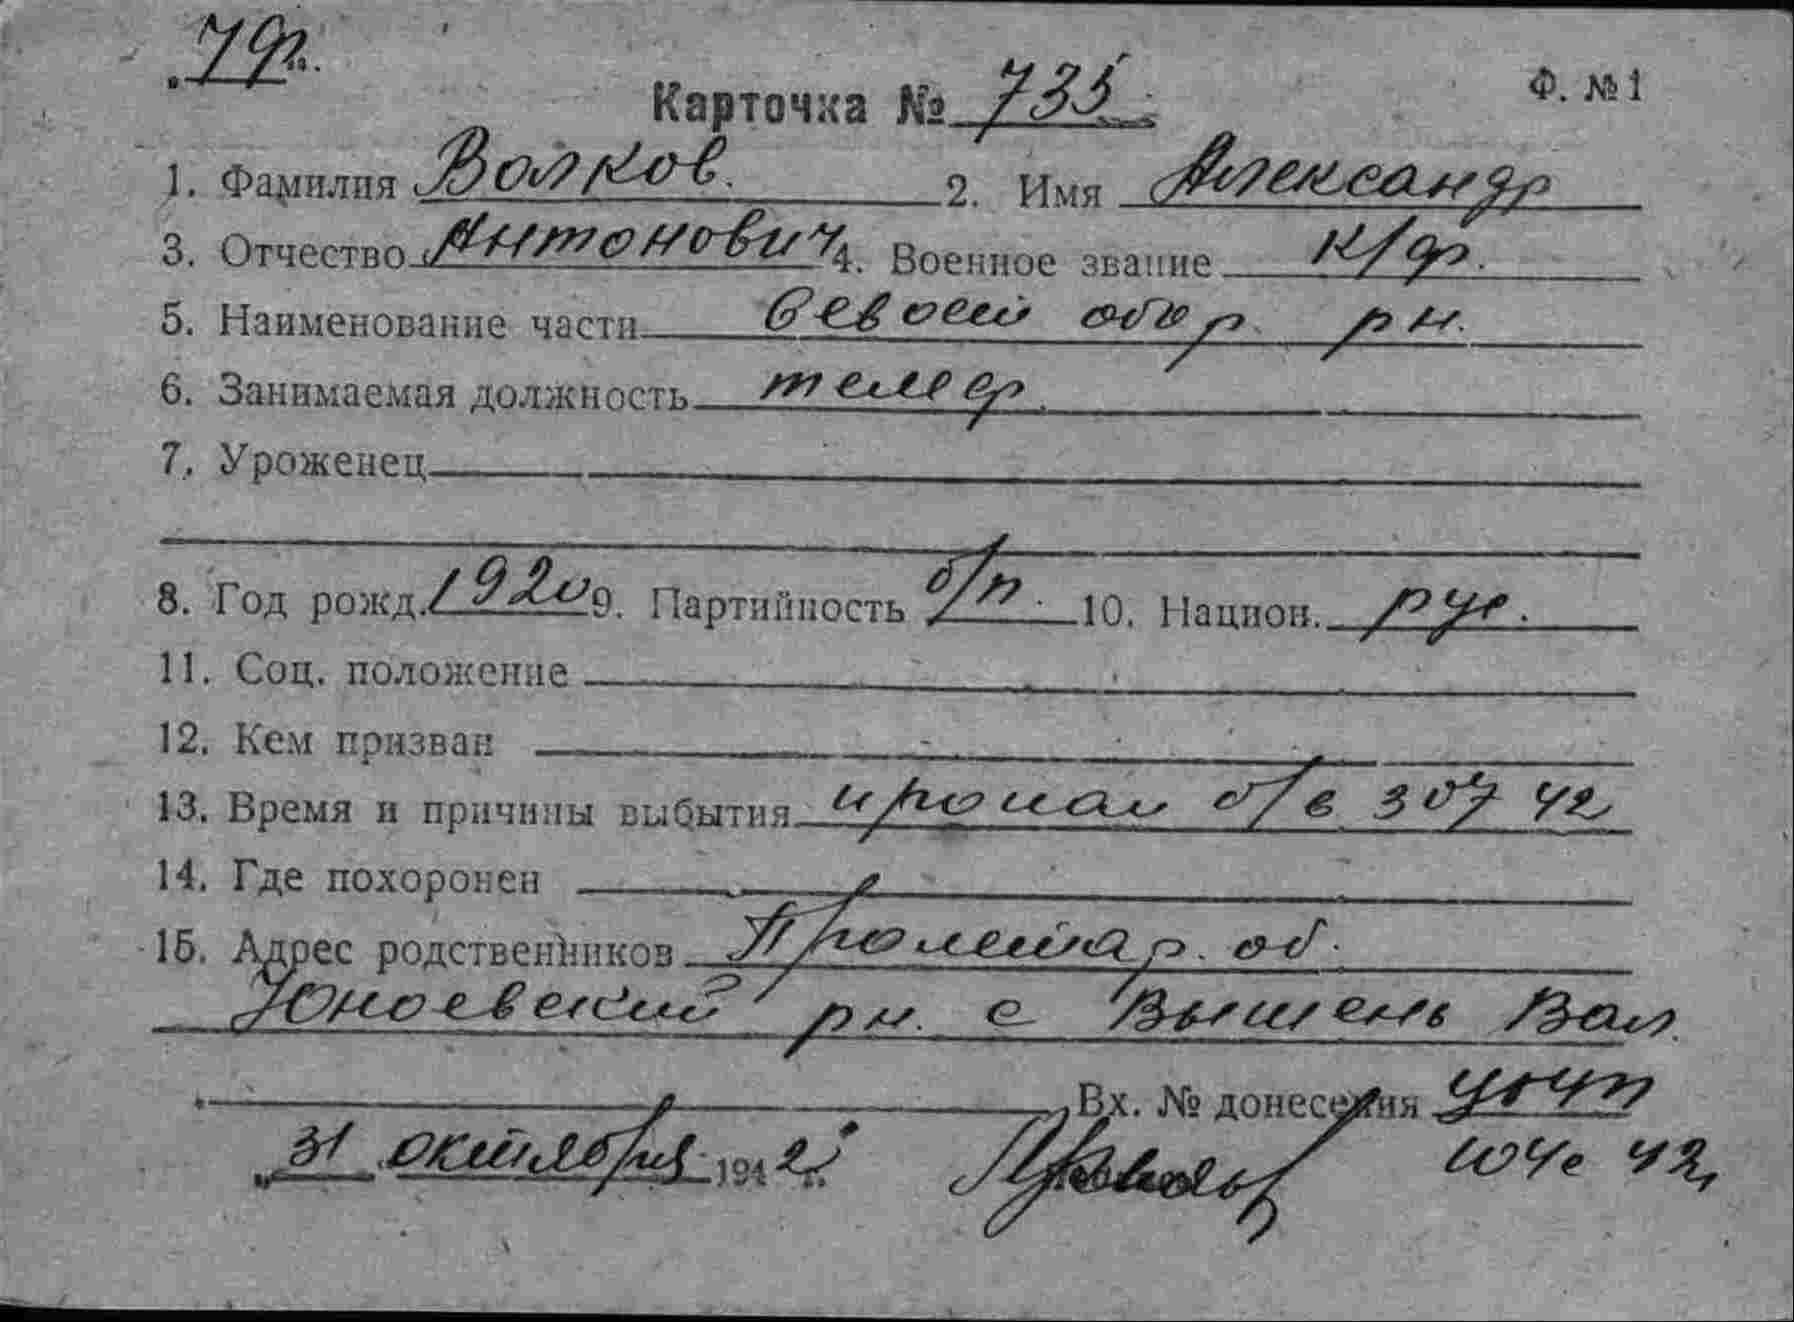 79г.
Карточка № 735 Ф. №1
1. Фамилия Волков. 2. Имя Александр
3. Отчество Антонович 4. Военное звание к/ф.
5. Наименование части Севост обор. рн.
6. Занимаемая должность телеф.
7. Уроженец
8. Год рожд. 1920 9. Партийность б/п. 10. Национ. рус.
11. Соц. положение
12. Кем призван
13. Время и причины выбытия пропал б/в 3 07 42
14. Где похоронен
15. Адрес родственников Пролетар. об.
рн. с Вышень Вол.
Вх. № донесения
31 октября 1942 г.